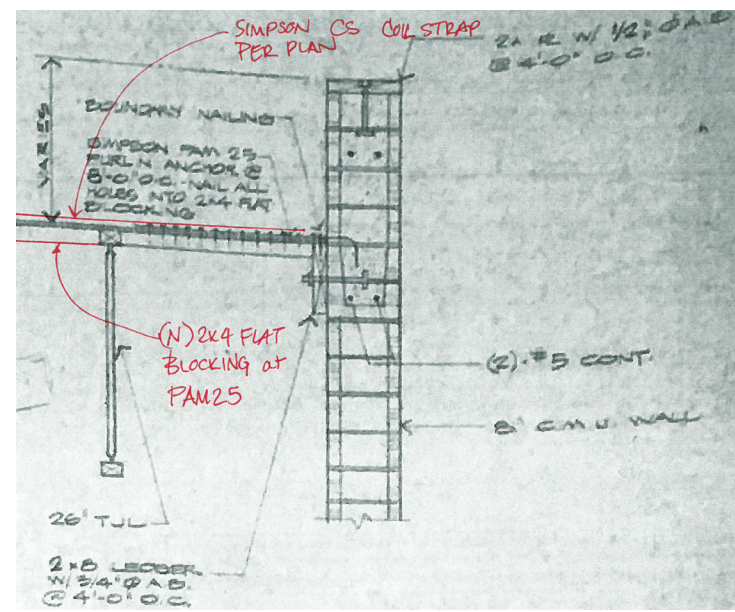 SIMPSON CS COIL STRAP
PER PLAN
2x PL W/ 1/2" Ø A.B.
@ 4'-0" O.C.
VARIES
BOUNDARY NAILING
SIMPSON PAM 25
PURLIN ANCHOR @
8'-0" O.C. NAIL ALL
HOLES INTO 2x4 FLAT
BLOCKING
(N) 2x4 FLAT
BLOCKING at
PAM25
(2)-#5 CONT.
8" C.M.U. WALL
26" TJL
2x8 LEDGER
W/ 3/4" Ø A.B.
@ 4'-0" O.C.